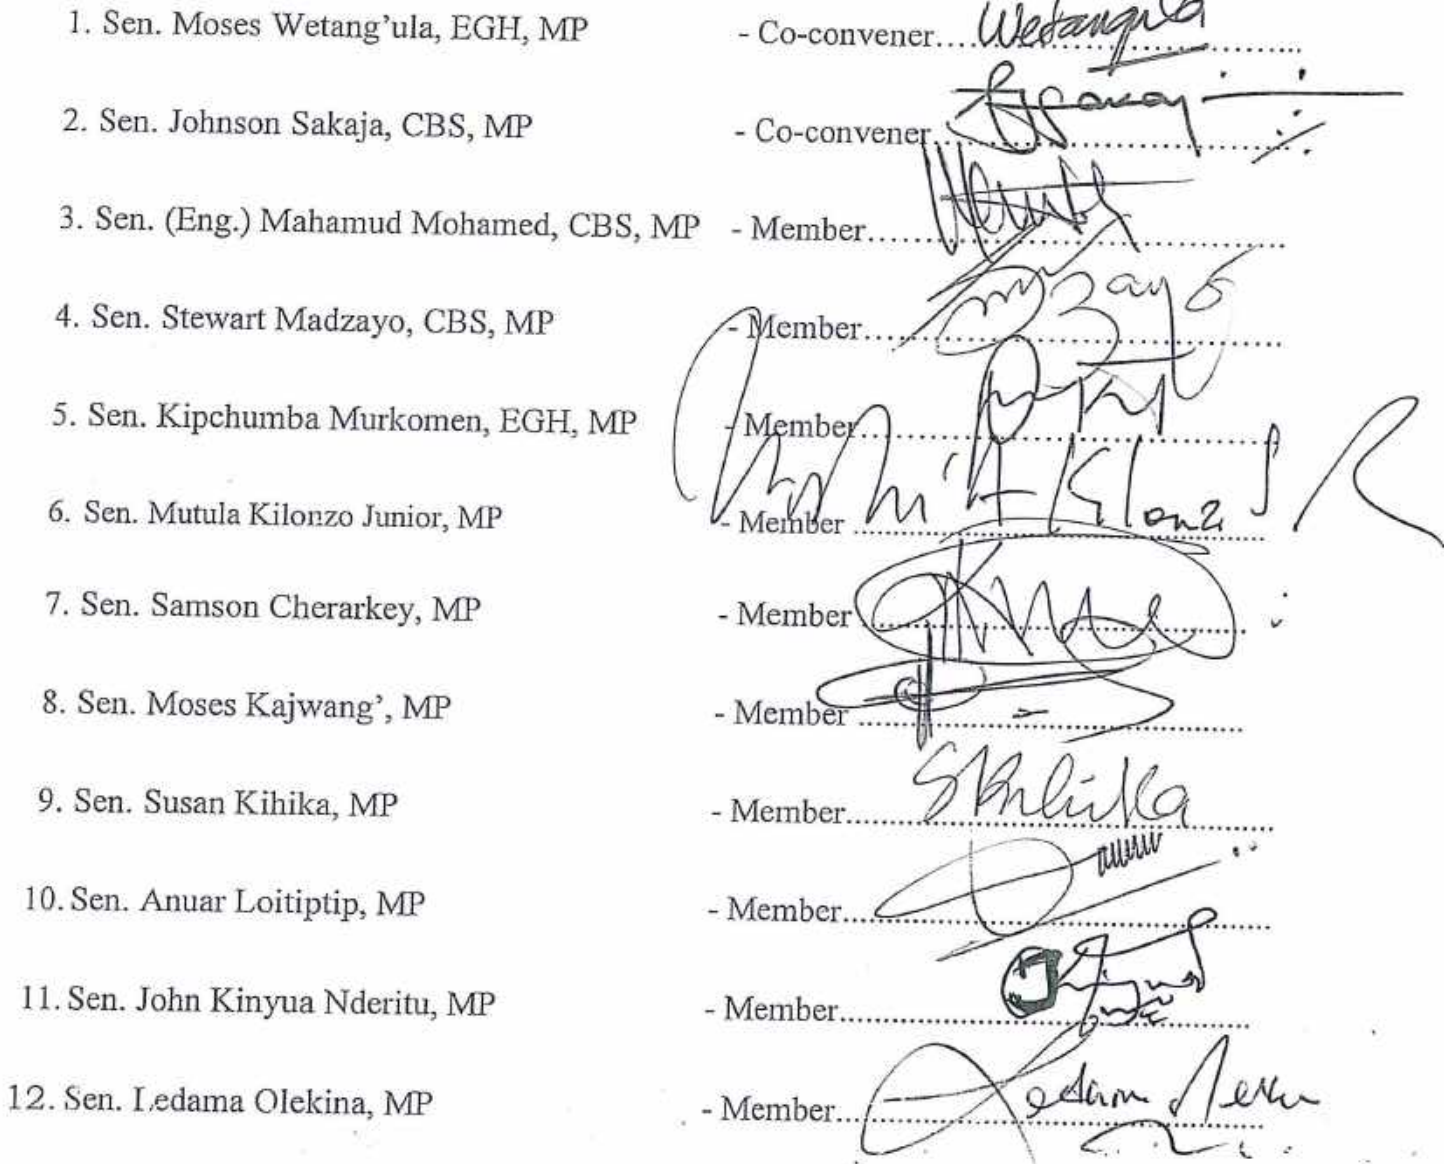 1. Sen. Moses Wetang'ula, EGH, MP - Co-convener.... Wetangula
2. Sen. Johnson Sakaja, CBS, MP - Co-convener
3. Sen. (Eng.) Mahamud Mohamed, CBS, MP - Member
4. Sen. Stewart Madzayo, CBS, MP - Member
5. Sen. Kipchumba Murkomen, EGH, MP - Member
6. Sen. Mutula Kilonzo Junior, MP - Member
7. Sen. Samson Cherarkey, MP - Member
8. Sen. Moses Kajwang', MP - Member
9. Sen. Susan Kihika, MP - Member SKihika
10. Sen. Anuar Loitiptip, MP - Member
11. Sen. John Kinyua Nderitu, MP - Member
12. Sen. Ledama Olekina, MP - Member